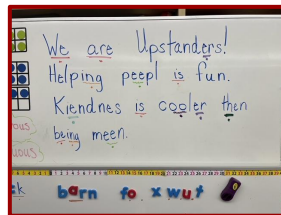 We are Upstanders!
Helping peepl is fun.
Kiendnes is cooler then
being meen.
ck barn fo x wut